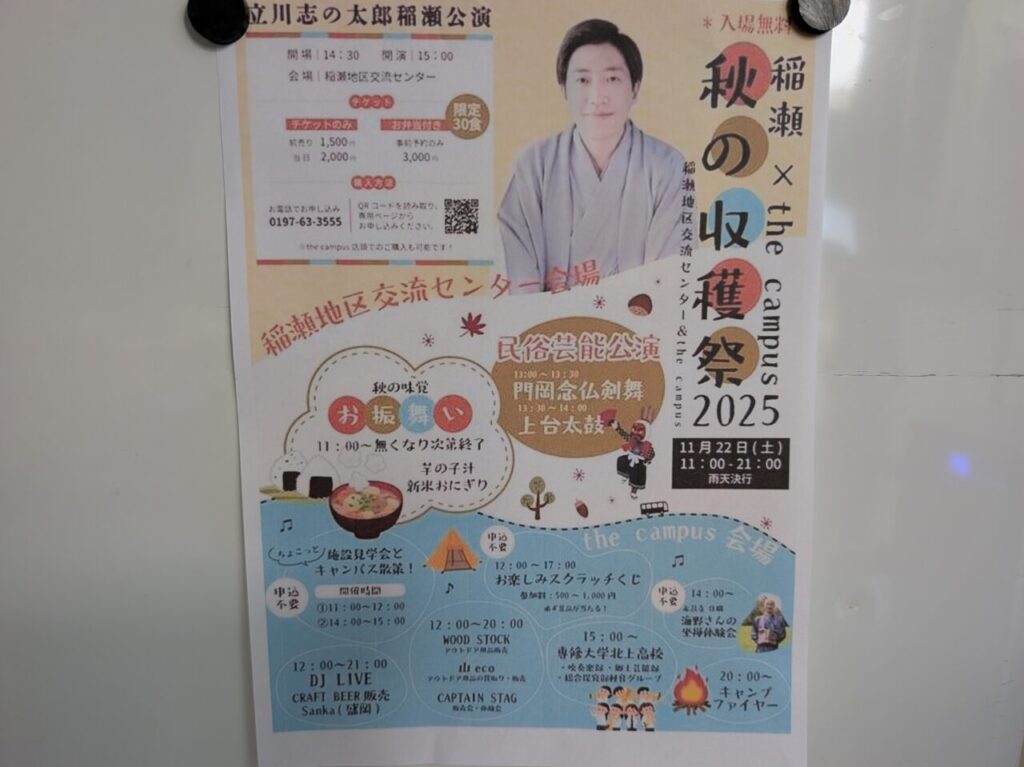 立川志の太郎稲瀬公演
開場｜14：30　開演｜15：00
会場｜稲瀬地区交流センター
チケット
限定
30食
チケットのみ
前売り 1,500円
当日 2,000円
お弁当付き
事前予約のみ
3,000円
購入方法
お電話でお申し込み
0197-63-3555
QRコードを読み取り、
専用ページから
お申し込みください。
※the campus 店頭でのご購入も可能です！
＊入場無料
稲瀬 × the campus
秋の収穫祭
稲瀬地区交流センター＆the campus
2025
11月22日(土)
11：00-21：00
雨天決行
稲瀬地区交流センター会場
民俗芸能公演
13:00～13:30
門岡念仏剣舞
13:30～14:00
上台太鼓
秋の味覚
お振舞い
11：00～無くなり次第終了
芋の子汁
新米おにぎり
the campus 会場
ちょこっと
施設見学会と
キャンパス散策！
申込
不要
開催時間
①11：00～12：00
②14：00～15：00
申込
不要
12：00～17：00
お楽しみスクラッチくじ
参加料：500～1,000円
必ず景品が当たる！
申込
不要
14：00～
海野さんの
坐禅体験会
12：00～20：00
WOOD STOCK
アウトドア用品販売
山eco
アウトドア用品の買取り・販売
CAPTAIN STAG
販売会・体験会
15：00～
専修大学北上高校
・吹奏楽部・郷土芸能部
12：00～21：00
DJ LIVE
CRAFT BEER 販売
Sanka(盛岡)
20：00～
キャンプ
ファイヤー